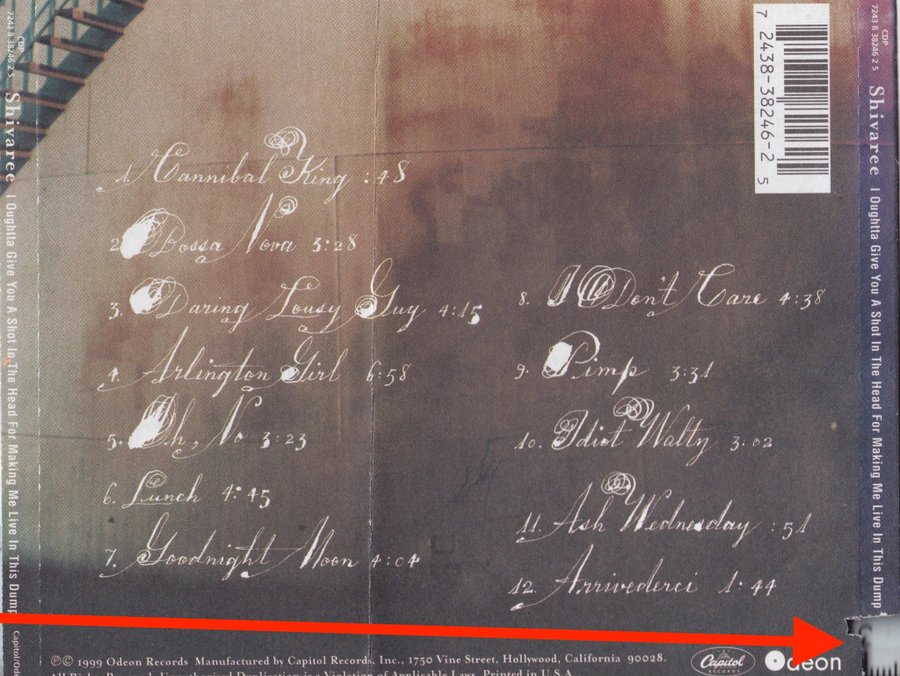 CDP
7243 8 38246 2 5
Shivaree
I Oughtta Give You A Shot In The Head For Making Me Live In This Dump
Capitol/Ode
1. Cannibal King :48
2. Bossa Nova 3:28
3. Daring Lousy Guy 4:15
4. Arlington Girl 6:58
5. Oh, No 3:23
6. Lunch 4:45
7. Goodnight Moon 4:04
8. I Don't Care 4:38
9. Pimp 3:31
10. Idiot Waltz 3:02
11. Ash Wednesday :51
12. Arrivederci 1:44
7 2438-38246-2 5
CDP
7243 8 38246 2 5
Shivaree
I Oughtta Give You A Shot In The Head For Making Me Live In This Dump
℗© 1999 Odeon Records Manufactured by Capitol Records, Inc., 1750 Vine Street, Hollywood, California 90028.
All Rights Reserved. Unauthorized Duplication is a Violation of Applicable Laws. Printed in U.S.A.
Capitol
RECORDS
Odeon